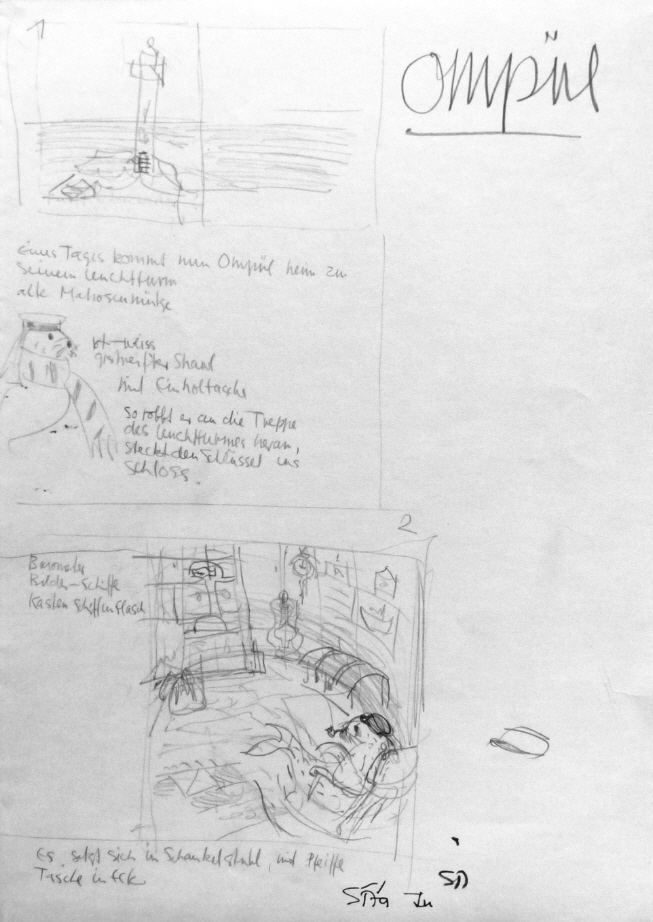 1
Ompül
Eines Tages kommt nun Ompül heim zu
seinem Leuchtturm
alte Matrosenmütze
rot-weiss
gestreifter Shawl
und Einholtasche
So robbt er an die Treppe
des Leuchtturmes heran,
steckt den Schlüssel ins
Schloss.
2
Barometer
Bilder-Schiffe
Kasten Schiff in Flasch
Er setzt sich in Schaukelstuhl, mit Pfeiffe
Tasche in Eck